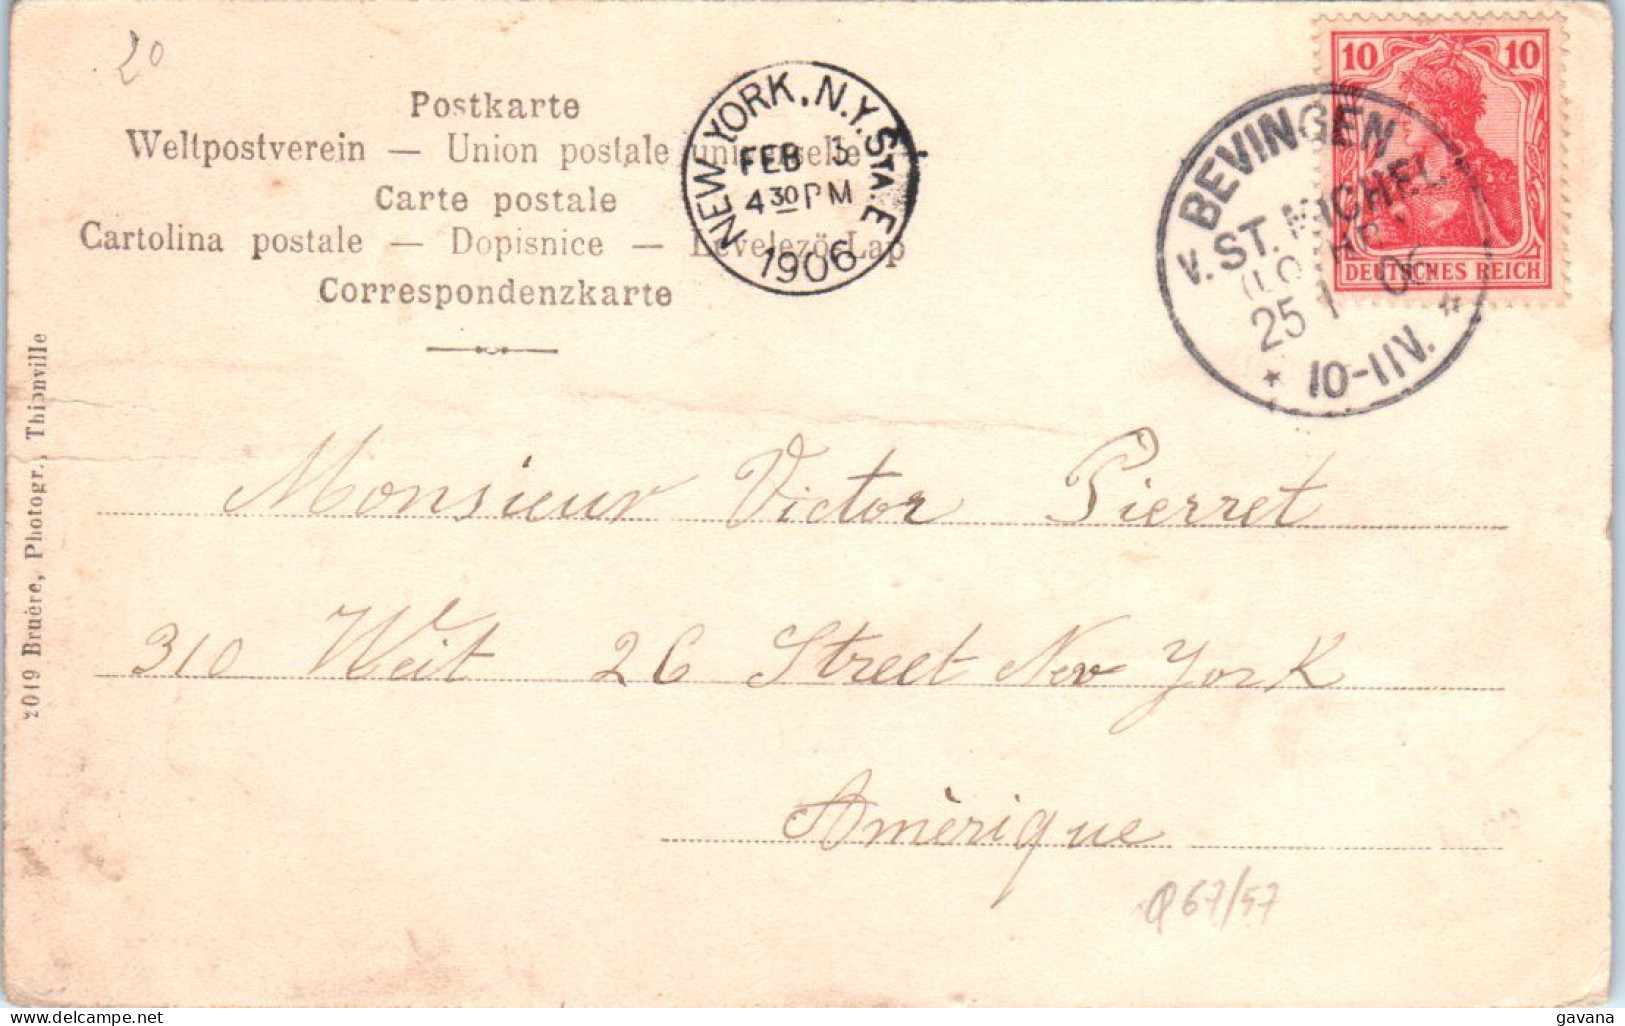 20
Postkarte
Weltpostverein — Union postale universelle
Carte postale
Cartolina postale — Dopisnice — Levelezö-Lap
Correspondenzkarte
NEW YORK, N.Y. STA. E
FEB 3
4 30 PM
1906
10 10
DEUTSCHES REICH
BEVINGEN
V. ST. MICHEL
25 1 06
* 10-11V.
2019 Bruère, Photogr., Thionville
Monsieur Victor Pierret
310 Weit 26 Street New York
Amèrique
67/57
gavana